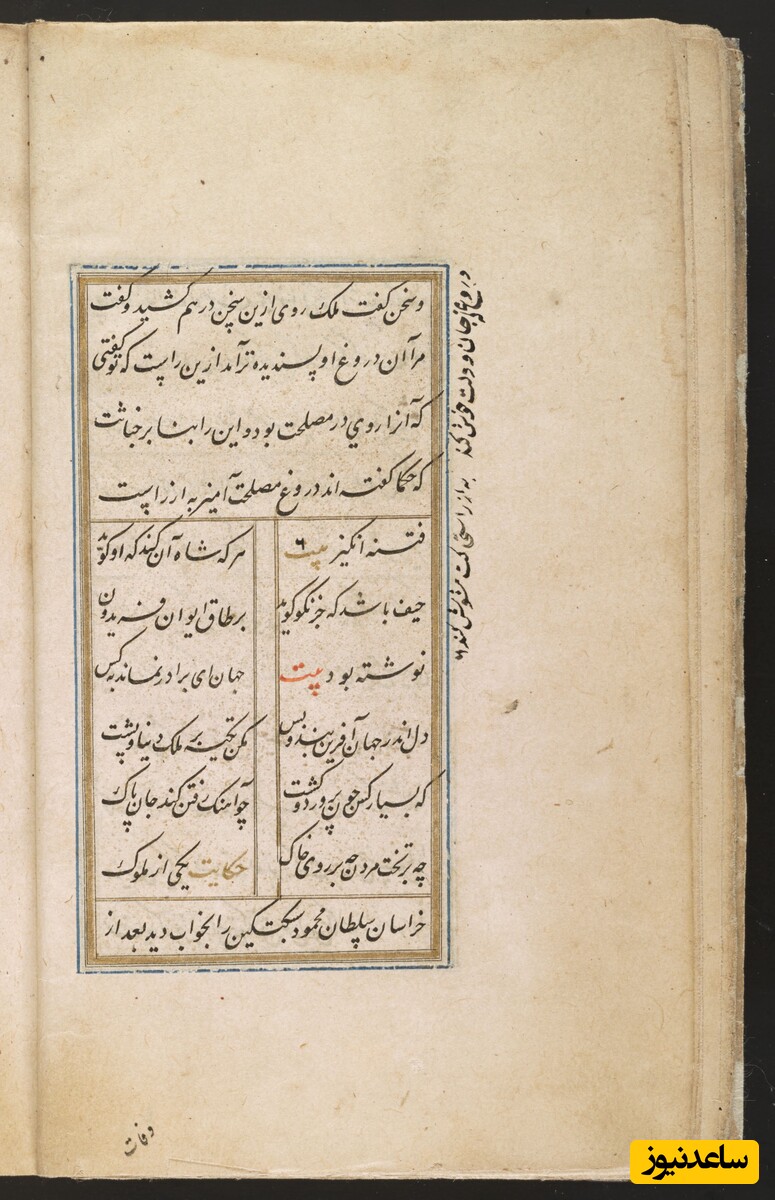 و سخن گفت ملک روی ازین سخن در هم کشید و گفت
مرا آن دروغ او پسندیده تر آمد ازین راست که تو گفتی
که آنرا روی در مصلحت بود و این را بنا بر خباثت
که حکما گفته اند دروغ مصلحت آمیز به از راست
فتنه انگیز بیت هر که شاه آن کند که او گوید
حیف باشد که جز نکو گوید بر طاق ایوان فریدون
نوشته بود بیت جهان ای برادر نماند به کس
دل اندر جهان آفرین بند و بس مکن تکیه بر ملک دنیا و پشت
که بسیار کس چون تو پرورد و کشت چو آهنگ رفتن کند جان پاک
چه بر تخت مردن چه بر روی خاک حکایت یکی از ملوک
خراسان سلطان محمود سبکتکین را بخواب دید بعد از
دروغی که جان و دلت خوش کند به از راستی کت مشوش کند
وفات
ساعدنیوز